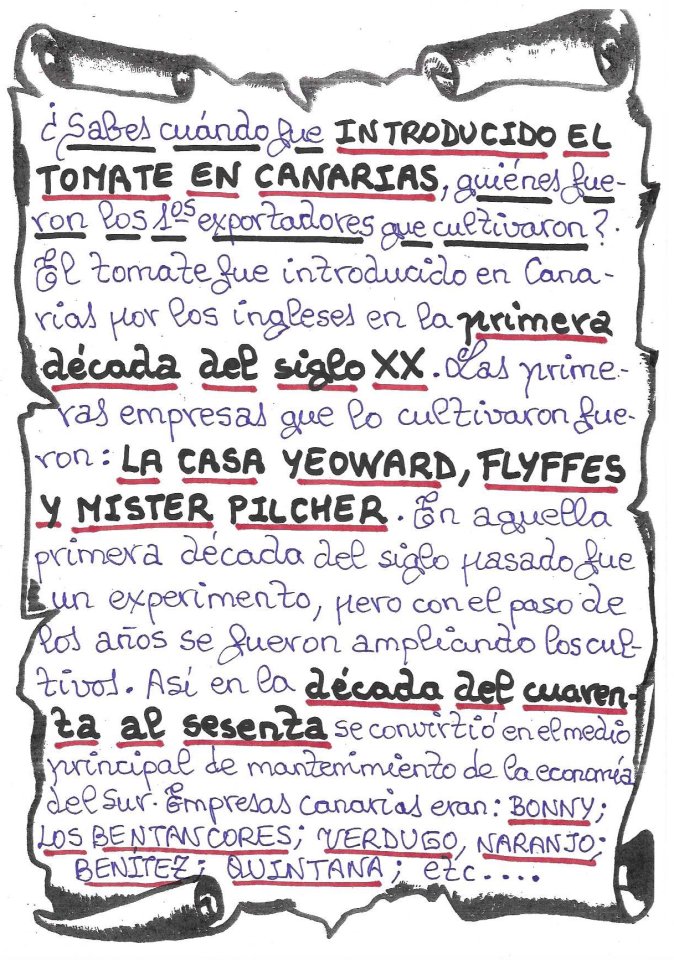 ¿Sabes cuándo fue INTRODUCIDO EL
TOMATE EN CANARIAS, quiénes fue-
ron los 1os exportadores que cultivaron?.
El tomate fue introducido en Cana-
rias por los ingleses en la primera
década del siglo XX. Las prime-
ras empresas que lo cultivaron fue-
ron: LA CASA YEOWARD, FLYFFES
Y MISTER PILCHER. En aquella
primera década del siglo pasado fue
un experimento, pero con el paso de
los años se fueron ampliando los cul-
tivos. Así en la década del cuaren-
ta al sesenta se convirtió en el medio
principal de mantenimiento de la economía
del Sur. Empresas Canarias eran: BONNY;
LOS BENTANCORES; VERDUGO, NARANJO;
BENÍTEZ; QUINTANA; etc....